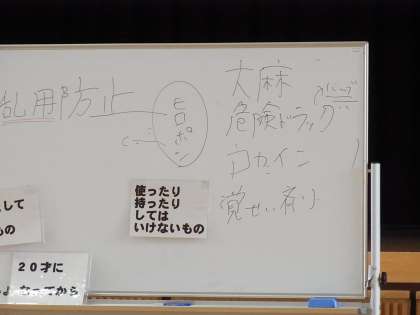 乱用防止
ヒロポン
大麻
危険ドラッグ
コカイン
覚せい剤
使ったり
持ったり
しては
いけないもの
して
もの
20才に
なってから